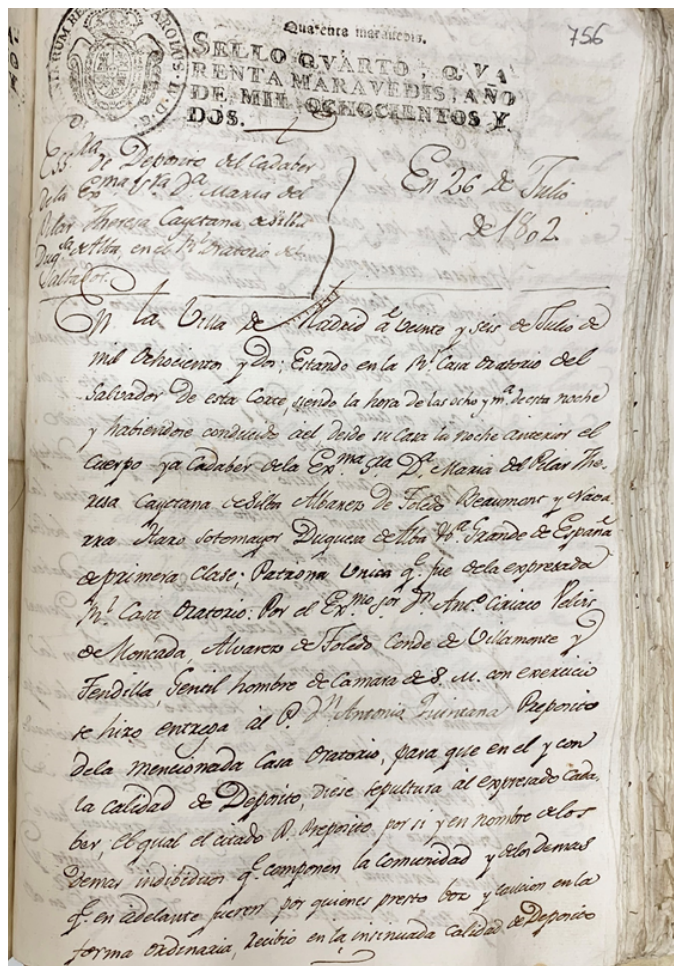 Quarenta maravedis.
756
SELLO QVARTO, QVA
RENTA MARAVEDIS, AÑO
DE MIL OCHOCIENTOS Y
DOS.
Ess.ra de Deposito del Cadaber
de la Ex.ma S.ra D.a Maria del
Pilar Theresa Cayetana de Silba
Duq.sa de Alba, en el R.l Oratorio del
Salvador.
En 26 de Julio
de 1802.
En la Villa de Madrid á veinte y seis de Julio de
mil ochocientos y dos: Estando en la R.l Casa Oratorio del
Salvador de esta Corte, siendo la hora de las ocho y m.a de esta noche
y habiendose conducido a el desde su casa la noche anterior el
cuerpo ya cadaber de la Ex.ma S.ra D.a Maria del Pilar The-
resa Cayetana de Silba Albarez de Toledo Beaumont y Nava-
rra Haro Sotomayor Duquesa de Alba V.a Grande de España
de primera clase; Patrona Unica q.e fue de la expresada
R.l Casa Oratorio: Por el Ex.mo Sor D.n Ant.o Ciriaco
de Moncada, Alvarez de Toledo Conde de Villamonte y
Tendilla, Gentil hombre de Camara de S. M. con exercicio
se hizo entrega al P. D.n Antonio Quintana Preposito
de la mencionada Casa Oratorio, para que en el y con
la calidad de Deposito, diese sepultura al expresado Cada-
ber, el qual el citado P. Preposito por si y en nombre de los
demas indibiduos q.e componen la comunidad y de los demas
q.e en adelante fueren por quienes presto boz y caucion en la
forma ordinaria, recibio en la insinuada calidad de Deposito